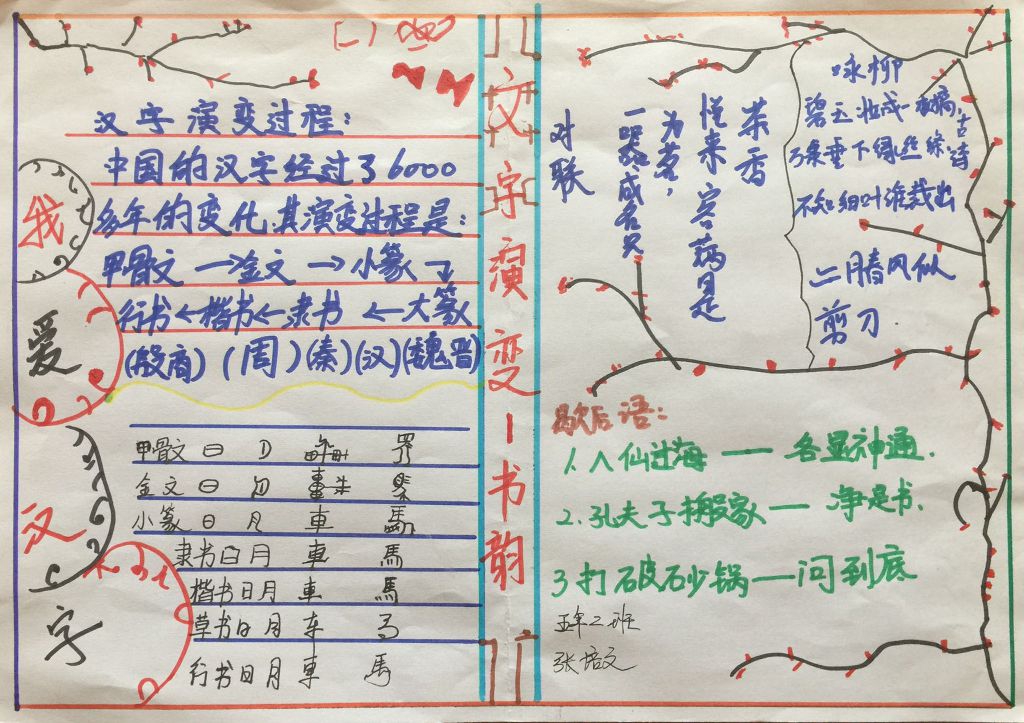 我
爱
汉
字
汉字演变过程:
中国的汉字经过了6000
多年的变化,其演变过程是:
甲骨文→金文→小篆→
行书←楷书←隶书←大篆
(殷商)(周)(秦)(汉)(魏晋)
甲骨文
金文
小篆 日 月 車 馬
隶书 日 月 車 馬
楷书 日 月 車 馬
草书 日 月 车 马
行书 日 月 車 馬
文字演变-书韵
对联
茶香
惟来客病日是
为茗,
一器成名只
咏柳
古诗
碧玉妆成一树高,
万条垂下绿丝绦
不知细叶谁裁出
二月春风似
剪刀.
歇后语:
1.八仙过海——各显神通.
2.孔夫子搬家——净是书.
3打破砂锅——问到底
五年二班
张培文